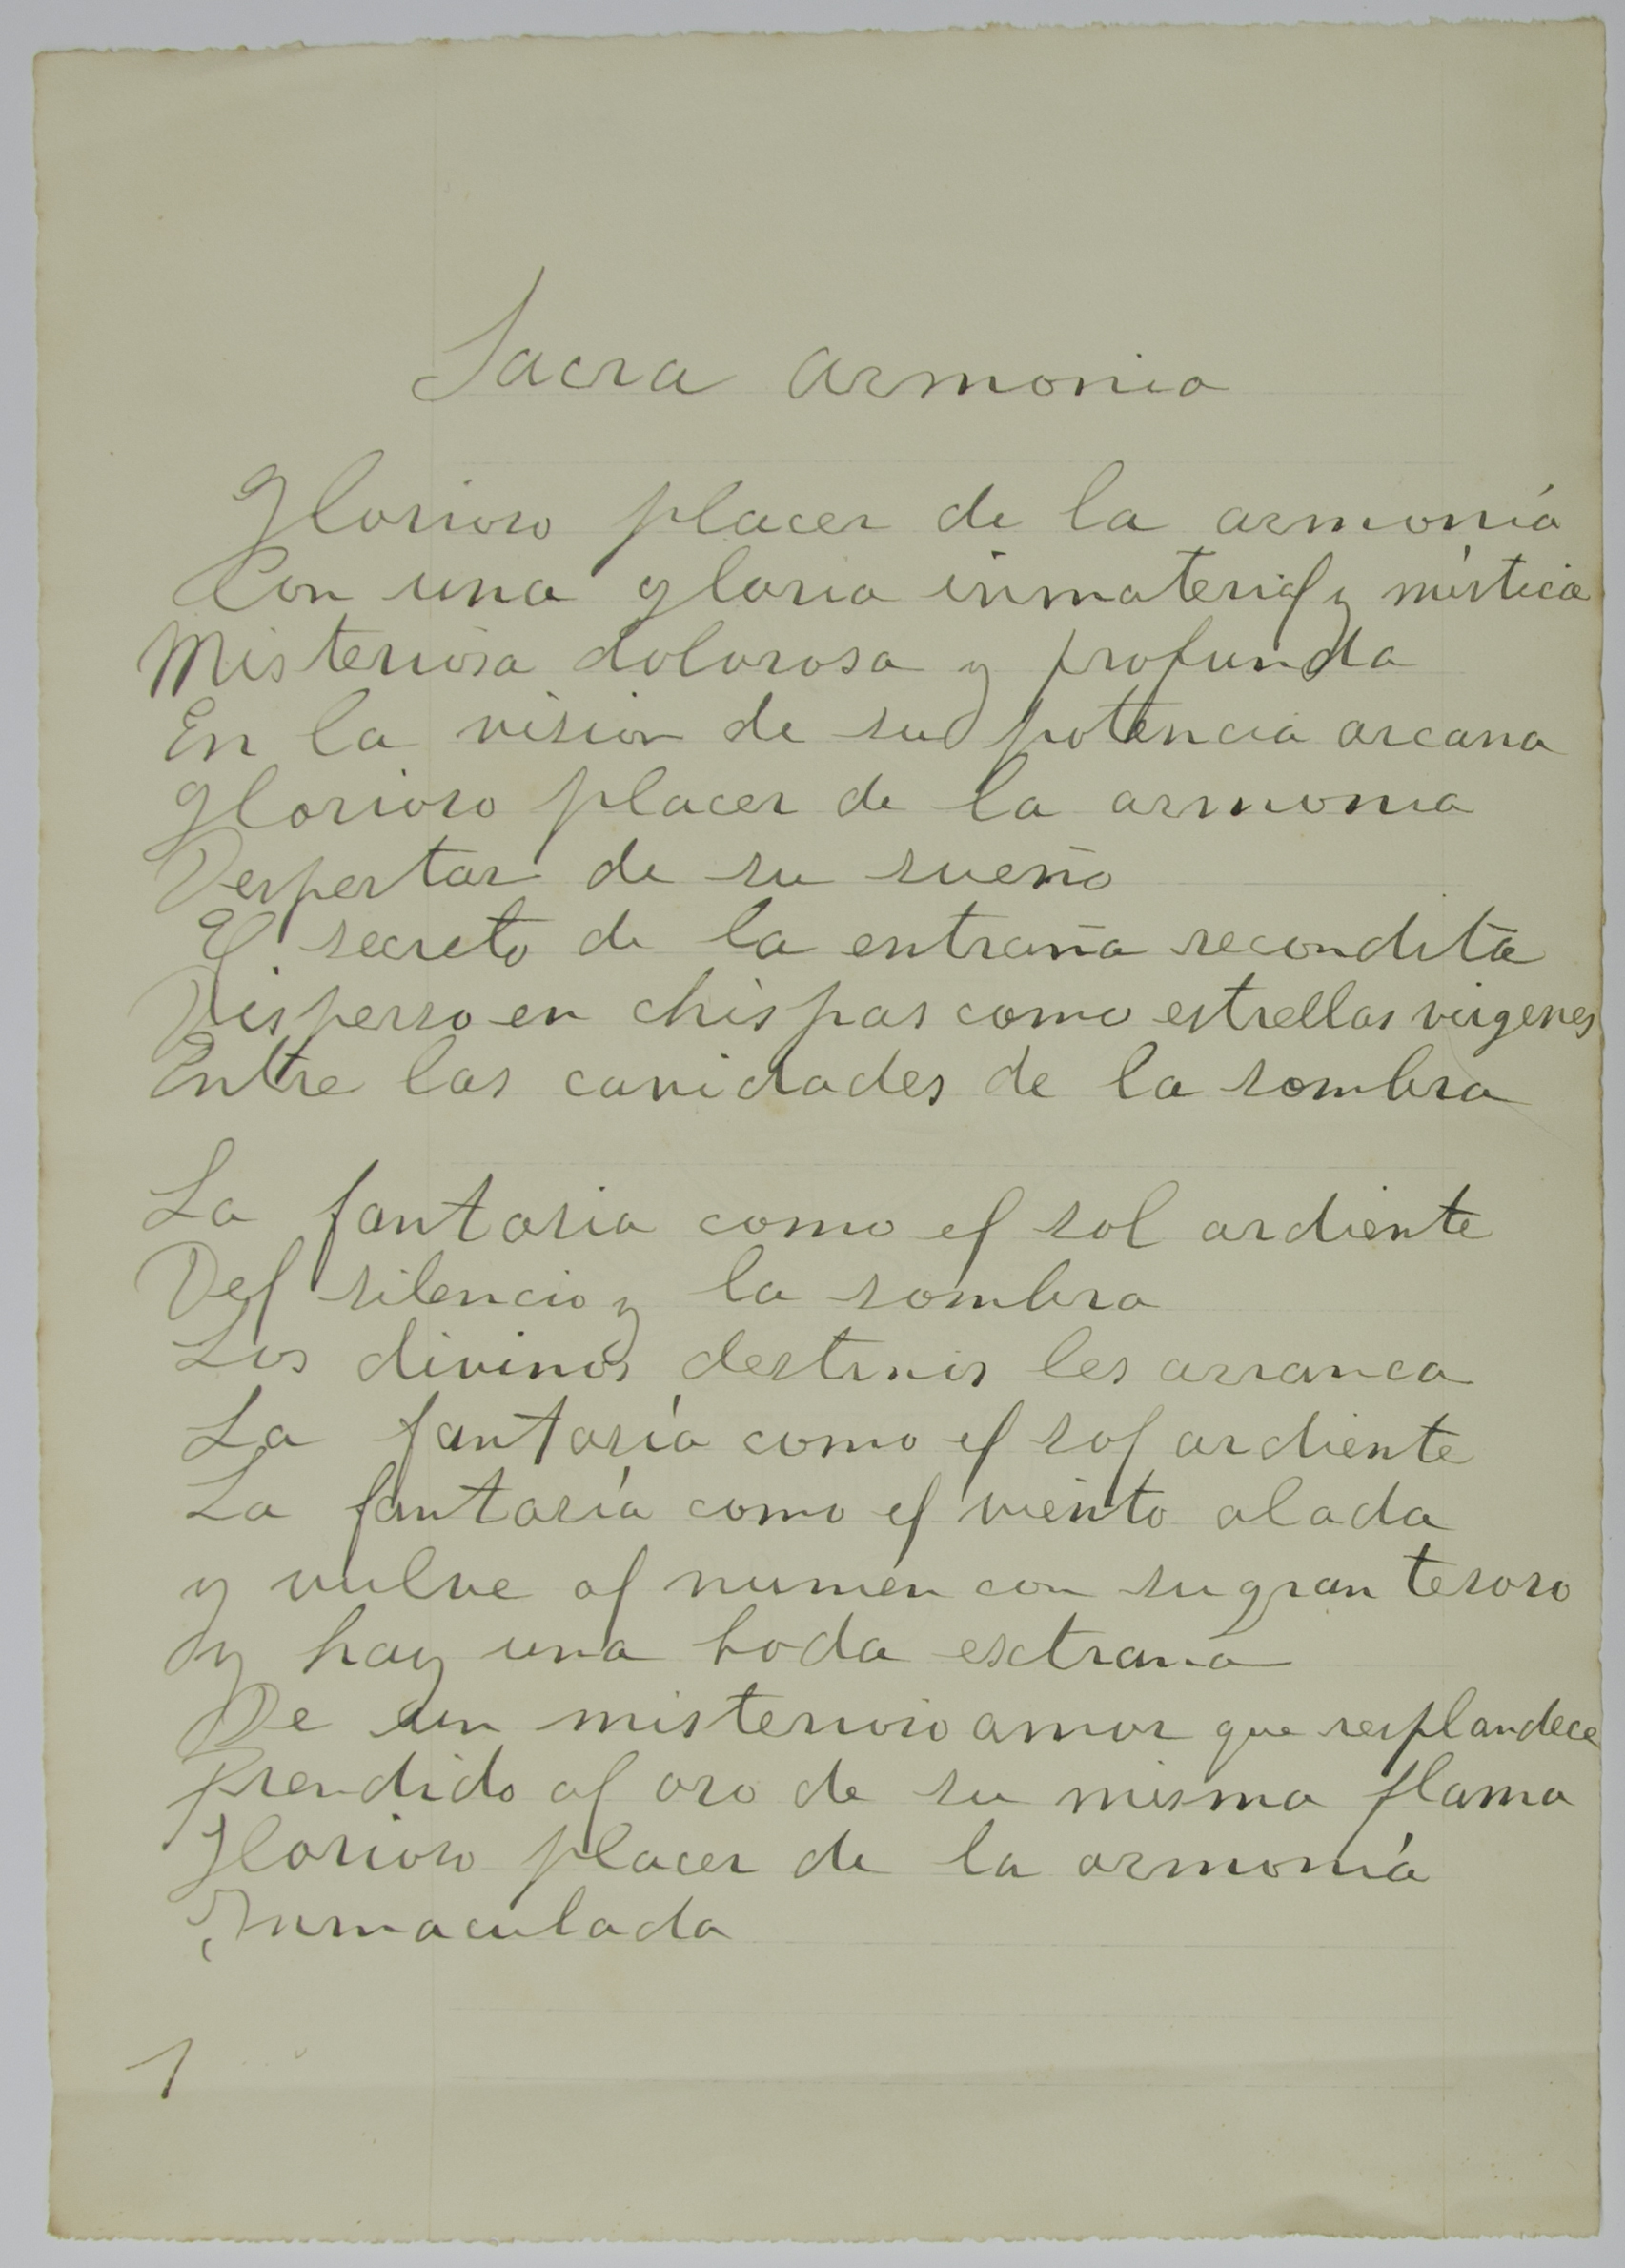 Sacra armonia
Glorioso placer de la armonía
Con una gloria inmaterial y mística
Misteriosa dolorosa y profunda
En la vision de su potencia arcana
Glorioso placer de la armonia
Despertar de su sueño
El secreto de la entraña recondita
Disperso en chispas como estrellas virgenes
Entre las cavidades de la sombra
La fantasia como el sol ardiente
Del silencio y la sombra
Los divinos destinos les arranca
La fantasía como el sol ardiente
La fantasía como el viento alada
y vuelve al numen con su gran tesoro
y hay una boda extraña
De un misterioso amor que resplandece
Prendido al oro de su misma flama
Glorioso placer de la armonía
Inmaculada
1